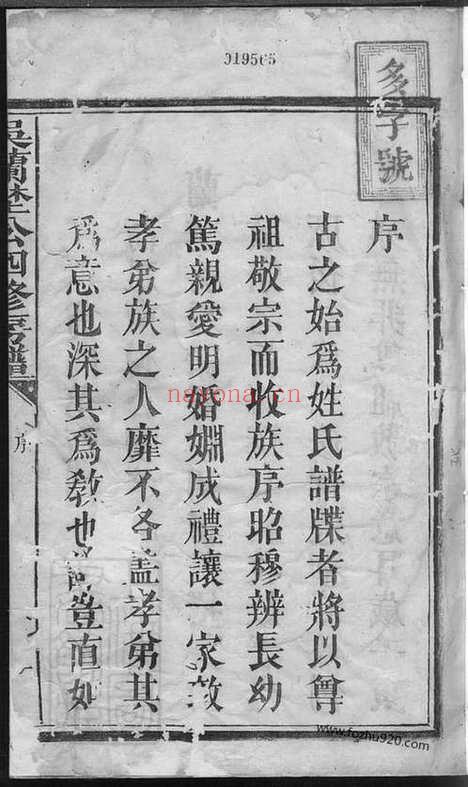 019565
多字號
序
古之始爲姓氏譜牒者將以尊
祖敬宗而收族序昭穆辨長幼
篤親愛明婚婣成禮讓一家敦
孝弟族之人靡不各盡孝弟其
爲意也深其爲教也豈直如
吳蘭埜公四修房譜
序
nayona.cn
www.fozhu920.com